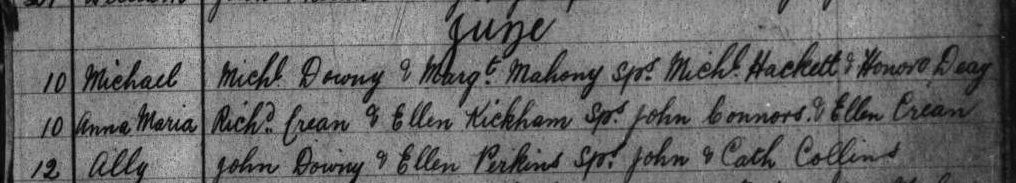 June
10 Michael Michl. Downy & Margt. Mahony Sprs. Michl. Hackett & Honora Deay
10 Anna Maria Richd. Crean & Ellen Kickham Sprs. John Connors. & Ellen Crean
12 Ally John Downy & Ellen Perkins Sprs. John & Cath Collins